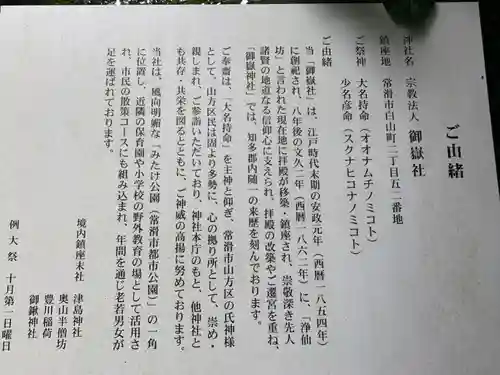 ご由緒
神社名　宗教法人　御嶽社
鎮座地　常滑市白山町二丁目五一番地
ご祭神　大名持命（オオナムチノミコト）
少名彦命（スクナヒコナノミコト）
ご由緒
当「御嶽社」は、江戸時代末期の安政元年（西暦一八五四年）
に創祀され、八年後の文久二年（西暦一八六二年）に、「浄仙
坊」と言われた現在地に拝殿が移築・鎮座され、崇敬深き先人
諸賢の地道なる信仰心に支えられ、拝殿の改築やご遷宮を重ね、
「御嶽神社」では、知多郡内随一の来歴を刻んでおります。
ご奉齋は、「大名持命」を主神と仰ぎ、常滑市山方区の氏神様
として、山方区民は固より多勢に、心の拠り所として、崇め・
親しまれ、ご参詣いただいており、神社本庁のもと、他神社と
も共存・共栄を図るとともに、ご神威の高揚に努めております。
当社は、風向明媚な「みたけ公園（常滑市都市公園）」の一角
に位置し、近隣の保育園や小学校の野外教育の場として活用さ
れ、市民の散策コースにも組み込まれ、年間を通じ老若男女が
足を運ばれております。
境内鎮座末社　津島神社
奥山半僧坊
豊川稲荷
御鍬神社
例大祭　十月第一日曜日